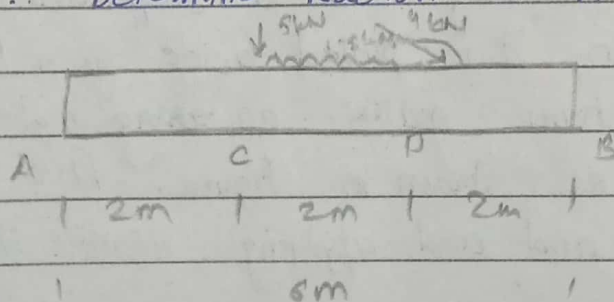 5kN 4kN
A C D B
2m 2m 2m
6m